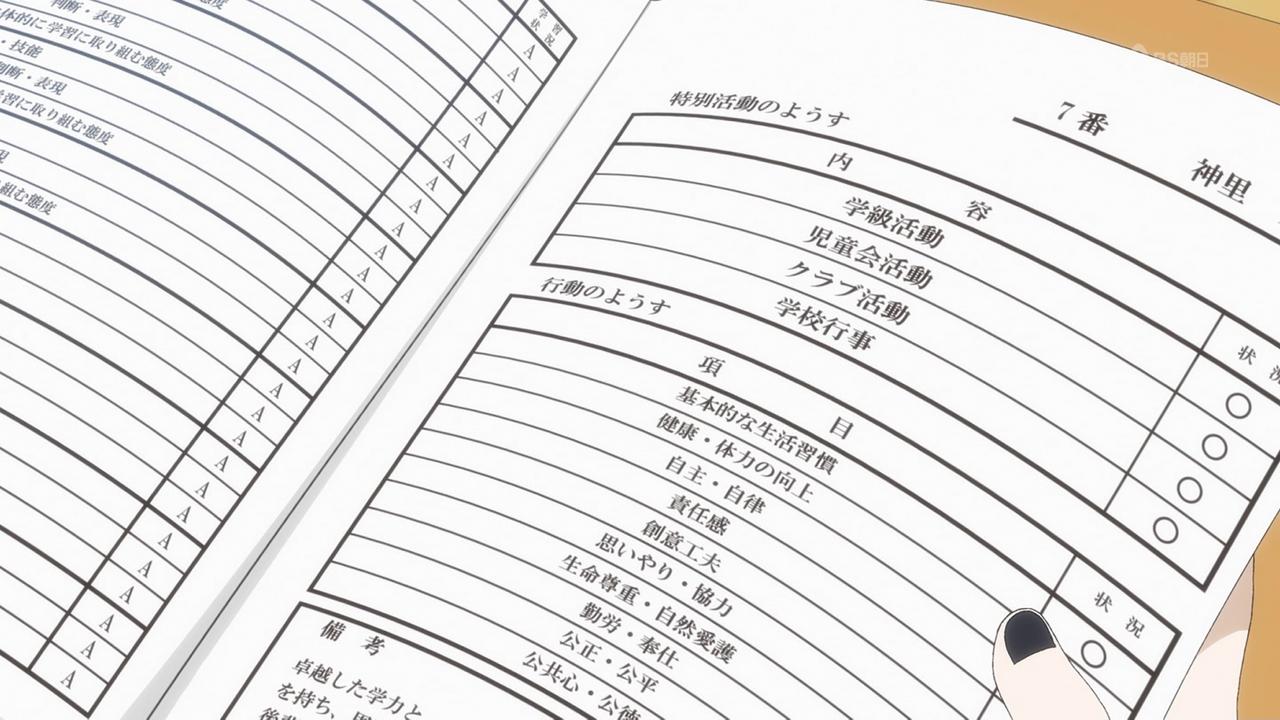 断・表現
体的に学習に取り組む態度
・技能
判断・表現
学習に取り組む態度
現
組む態度
学習
状況
A
A
A
A
A
A
A
A
A
A
A
A
A
A
A
A
A
A
A
A
A
A
A
A
A
A
BS朝日
7番 神里
特別活動のようす
内 容
状況
学級活動 ○
児童会活動 ○
クラブ活動 ○
学校行事 ○
行動のようす
項 目
状況
基本的な生活習慣 ○
健康・体力の向上
自主・自律
責任感
創意工夫
思いやり・協力
生命尊重・自然愛護
勤労・奉仕
公正・公平
公共心・公徳
備考
卓越した学力と
を持ち、